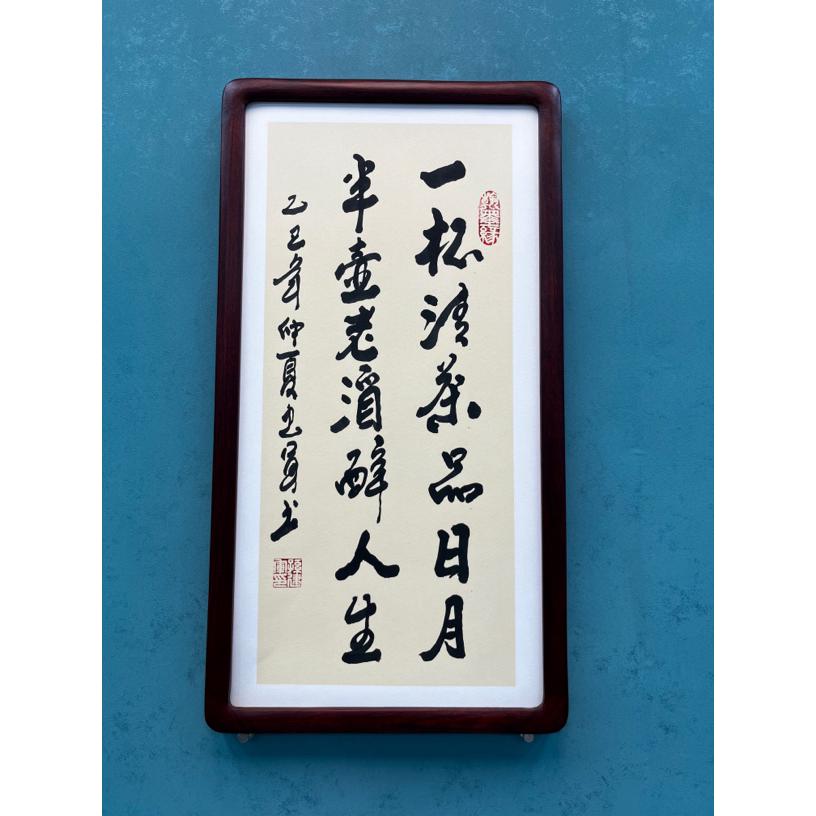 一杯清茶品日月
半壶老酒醉人生
乙巳年仲夏
书